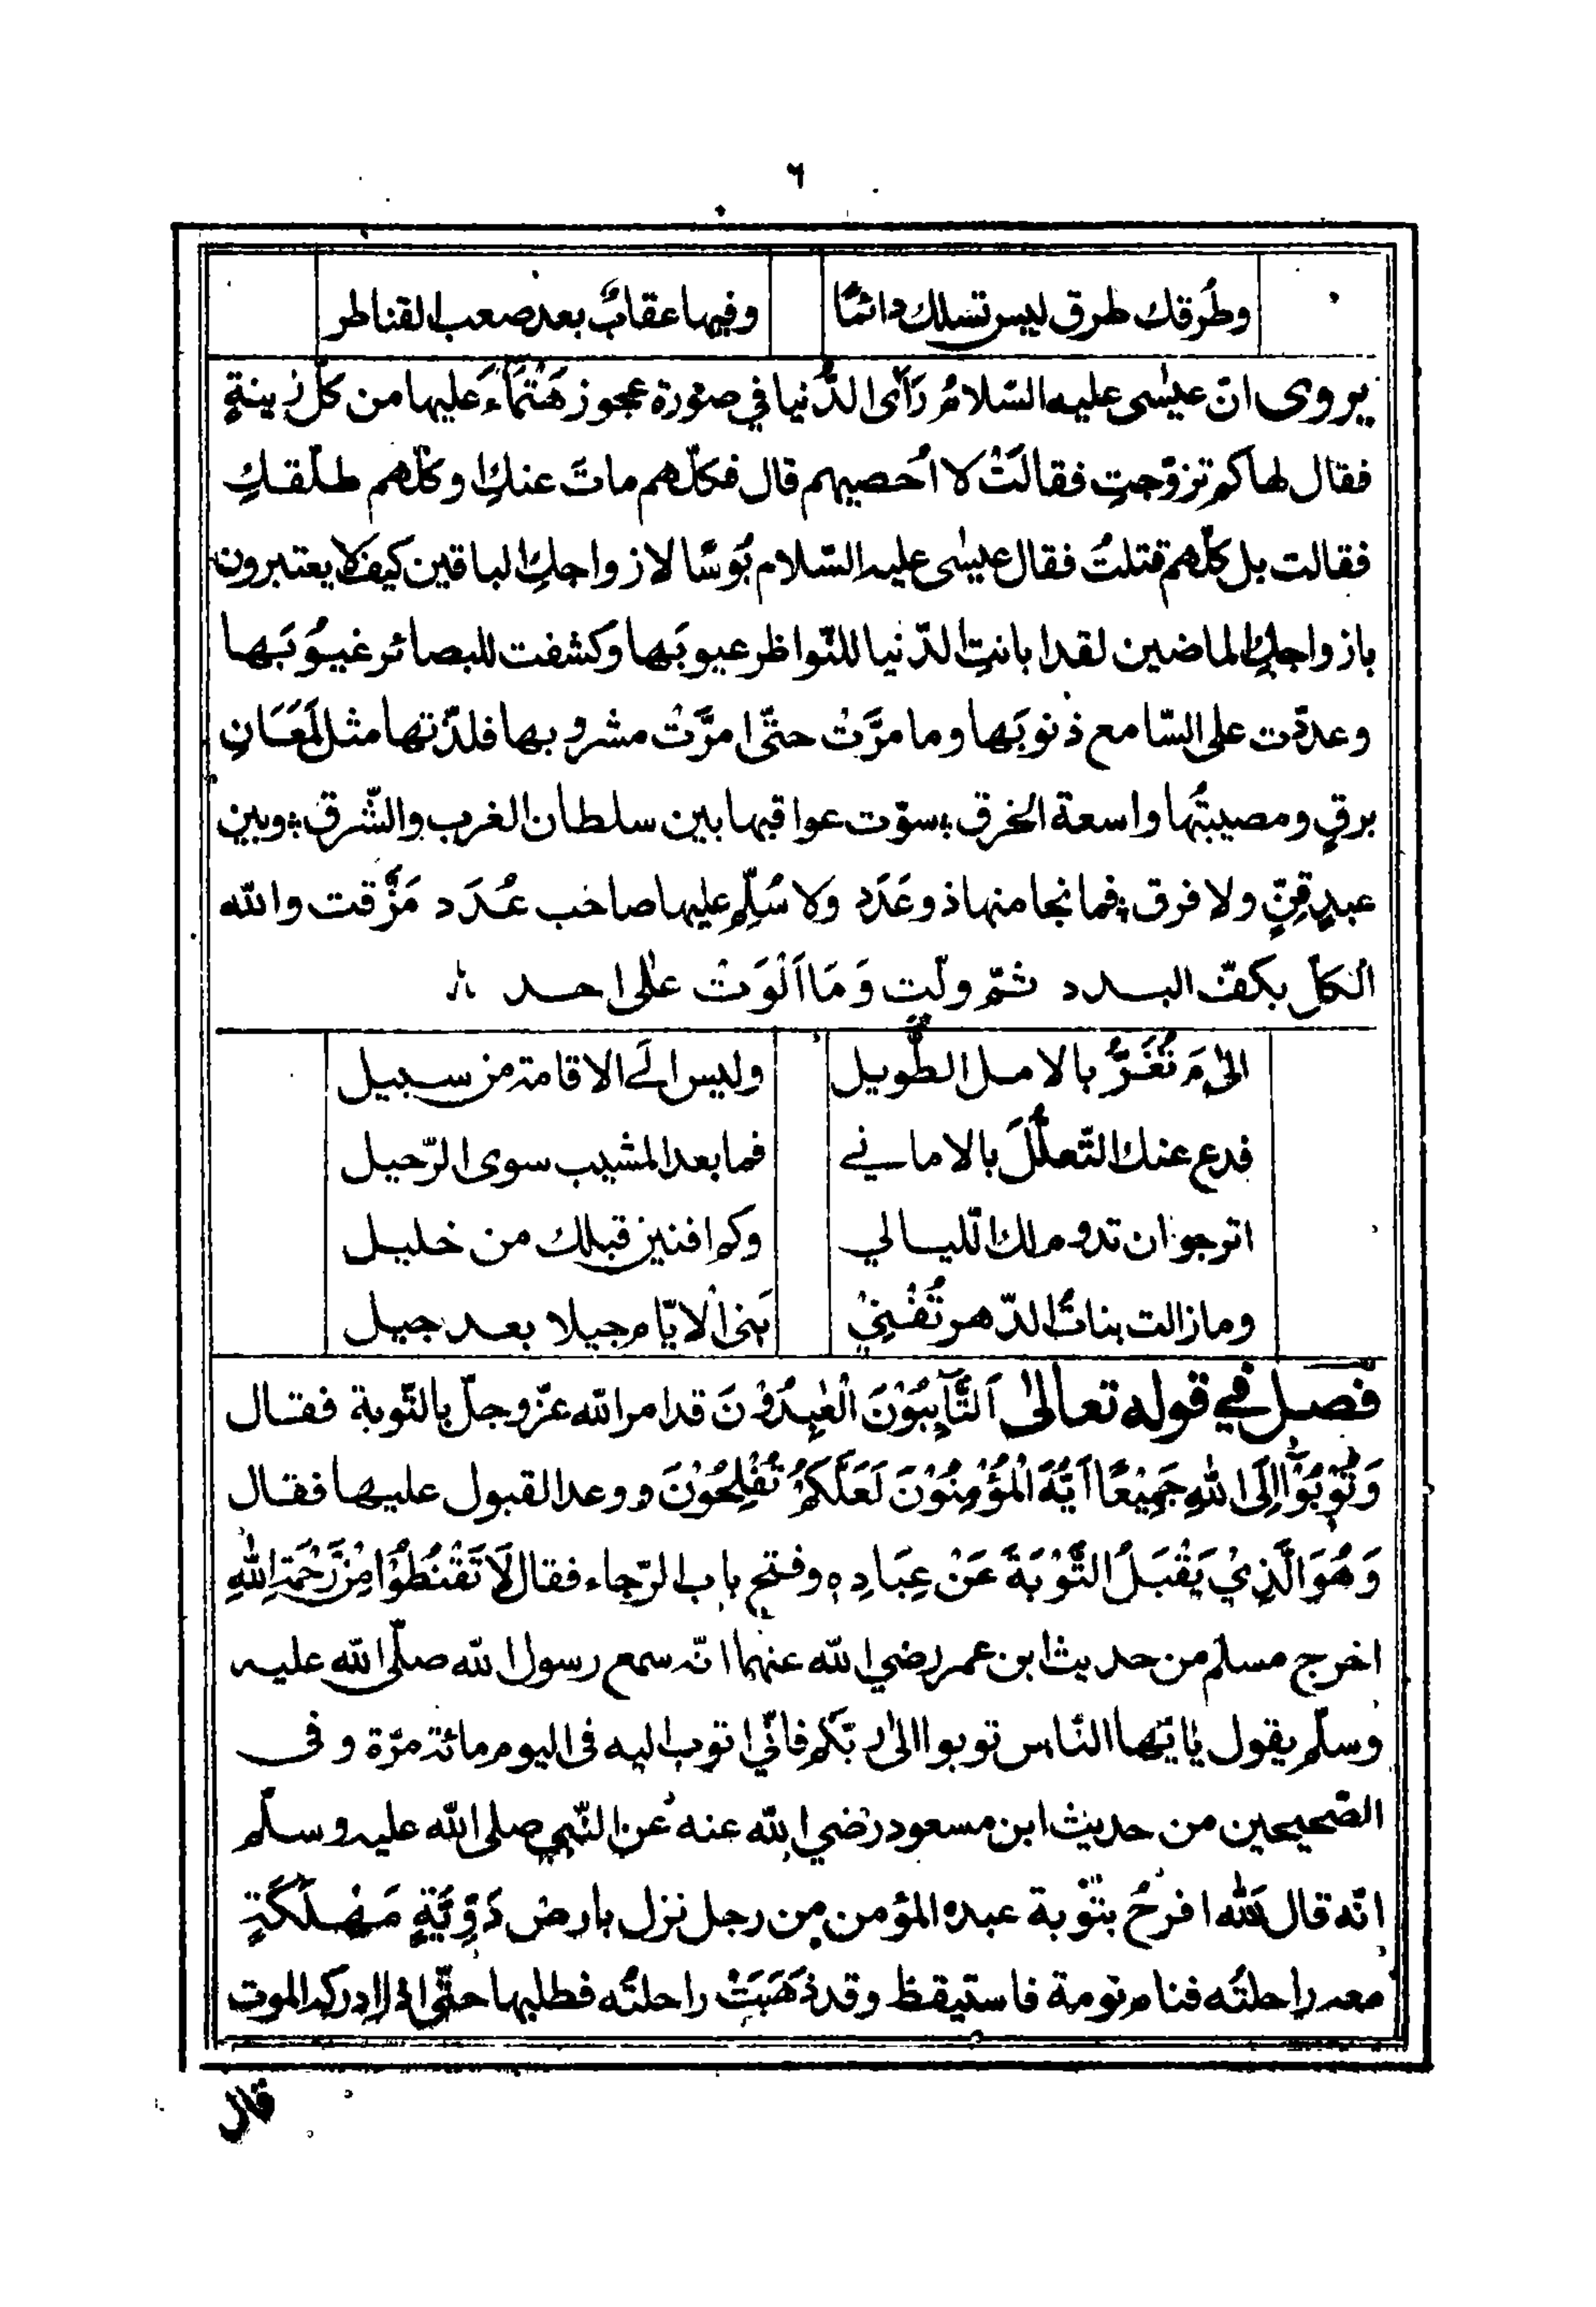 ٦
وطُرقك طرق ليس تسلك دائمًا وفيها عقابٌ بعد صعب القناطر
يروى انّ عيسٰى عليه السّلامُ رَأَى الدُّنيا في صورة عجوز هَتْمَاءَ عليها من كلّ زينةٍ
فقال لها كم تزوّجتِ فقالَتْ لا اُحصيهم قال فكلّهم ماتَ عنكِ او كلّهم طلّقكِ
فقالت بل كلّهم قتلتُ فقال عيسٰى عليه السّلام بُوسًا لازواجكِ الباقين كيف لا يعتبرون
بازواجكِ الماضين لقد ابانتِ الدّنيا للنّواظر عيوبَها وكشفت للبصائر غيوُبَها
وعدّدت على السّامع ذنوبَها وما مرَّتْ حتّى امرَّتْ مشروبها فلذّتها مثل لَمَعَانِ
برقٍ ومصيبتُها واسعة الخرق سوّت عواقبها بين سلطان الغرب والشّرق وبين
عبدٍ قِنٍّ ولا فرق فما نجا منها ذو عَدَدٍ ولا سُلِّم عليها صاحب عُدَد مَزَّقت والله
الكلّ بكفّ البدد ثمّ ولّت وَمَا اَلْوَتْ علٰى احد
الٰى مَ تُغَرُّ بالامل الطّويل وليس الَى الاقامة من سبيل
فدع عنك التّعلُّلَ بالاماني فما بعد المشيب سوى الرّحيل
اترجو ان تدوم لك اللّيالي وكم افنين قبلك من خليل
وما زالت بناتُ الدّهر تُفْنِيْ بَنى الْايّام جيلا بعد جيل
فصل في قوله تعالىٰ اَلتَّآئِبُوْنَ الْعٰبِدُوْنَ قد امر الله عزّ وجلّ بالتّوبة فقال
وَتُوْبُوْٓا اِلَى اللهِ جَمِيْعًا اَيُّهَ الْمُؤْمِنُوْنَ لَعَلَّكُمْ تُفْلِحُوْنَ ووعد القبول عليها فقال
وَهُوَ الَّذِيْ يَقْبَلُ التَّوْبَةَ عَنْ عِبَادِهٖ وفتح باب الرّجاء فقال لَا تَقْنَطُوْا مِنْ رَّحْمَةِ اللهِ
اخرج مسلم من حديث ابن عمر رضي الله عنهما انّه سمع رسول الله صلّى الله عليه
وسلّم يقول يٰايّها النّاس توبوا الىٰ ربّكم فانّي اتوب اليه فى اليوم مائة مرّة وفى
الصّحيحين من حديث ابن مسعود رضي الله عنه عن النّبي صلى الله عليه وسلّم
انّه قال لَلّٰه افرحُ بتوبة عبده المؤمن من رجل نزل بارض دَوِّيَّةٍ مَهْلَكَةٍ
معه راحلتُه فنام نومة فاستيقظ وقد ذَهَبَتْ راحلتُه فطلبها حتّى اذا ادركه الموت
قال